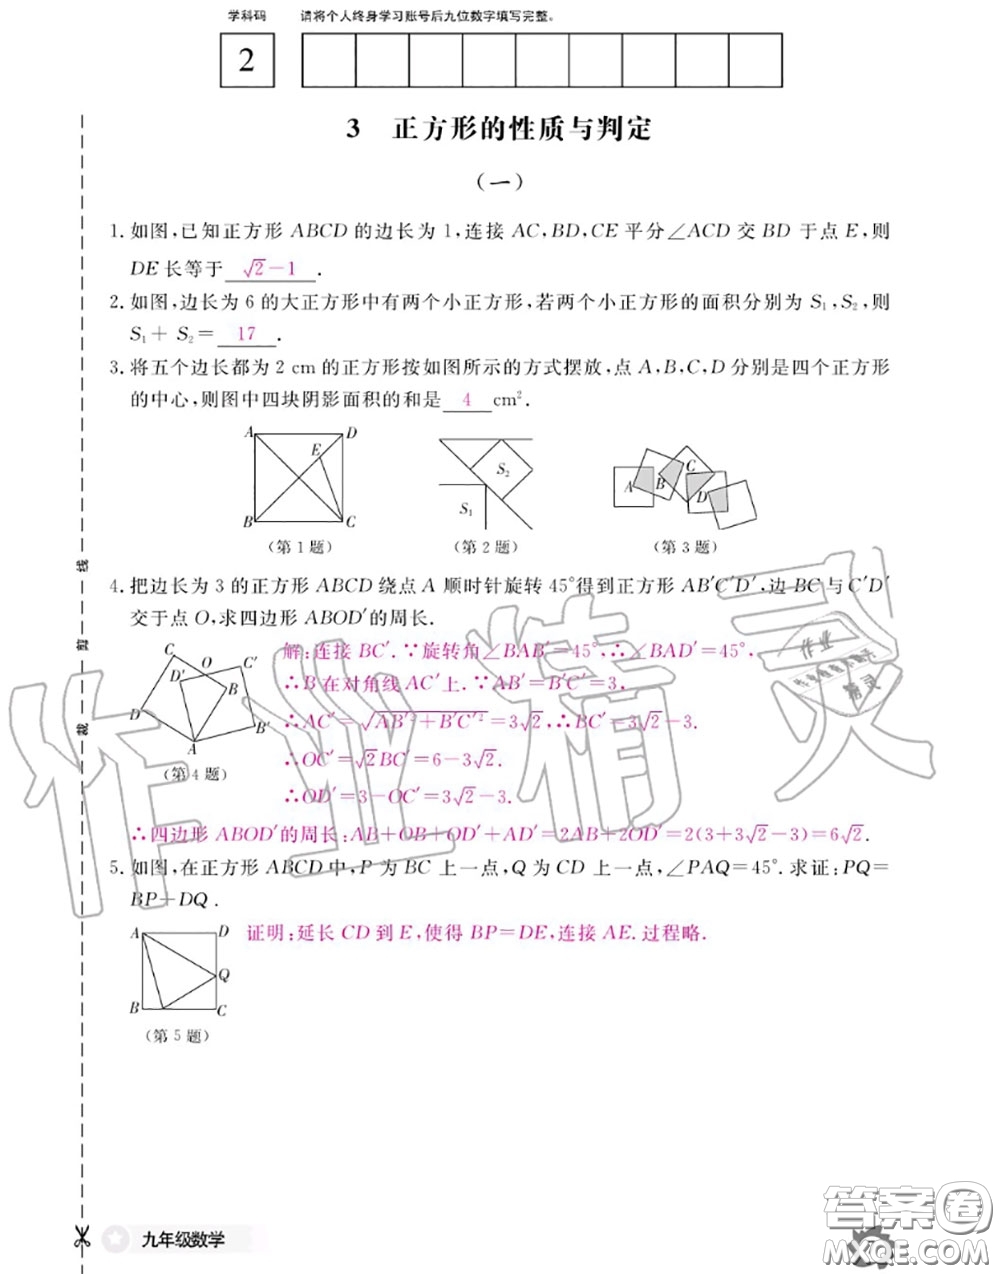 学科码 请将个人终身学习账号后九位数字填写完整。
2
3 正方形的性质与判定
(一)
1. 如图,已知正方形 ABCD 的边长为 1,连接 AC,BD,CE 平分∠ACD 交 BD 于点 E,则
DE 长等于 √2-1 .
2. 如图,边长为 6 的大正方形中有两个小正方形,若两个小正方形的面积分别为 S₁,S₂,则
S₁+ S₂= 17 .
3. 将五个边长都为 2 cm 的正方形按如图所示的方式摆放,点 A,B,C,D 分别是四个正方形
的中心,则图中四块阴影面积的和是 4 cm².
A D E B C
S₂ S₁
A B C D
(第 1 题) (第 2 题) (第 3 题)
4. 把边长为 3 的正方形 ABCD 绕点 A 顺时针旋转 45°得到正方形 AB′C′D′,边 BC 与 C′D′
交于点 O,求四边形 ABOD′的周长.
C O C′ D′ B D B′ A
(第 4 题)
解:连接 BC′.∵旋转角∠BAB′=45°,∴∠BAD′=45°,
∴B 在对角线 AC′上.∵AB′=B′C′=3,
∴AC′=√(AB′²+B′C′²)=3√2,∴BC′=3√2-3.
∴OC′=√2BC′=6-3√2.
∴OD′=3-OC′=3√2-3.
∴四边形 ABOD′的周长:AB+OB+OD′+AD′=2AB+2OD′=2(3+3√2-3)=6√2.
5. 如图,在正方形 ABCD 中,P 为 BC 上一点,Q 为 CD 上一点,∠PAQ=45°.求证:PQ=
BP+DQ.
A D Q B C
(第 5 题)
证明:延长 CD 到 E,使得 BP=DE,连接 AE.过程略.
线
剪
裁
作业精灵
作业
精灵
九年级数学
答案圈
MXQE.COM